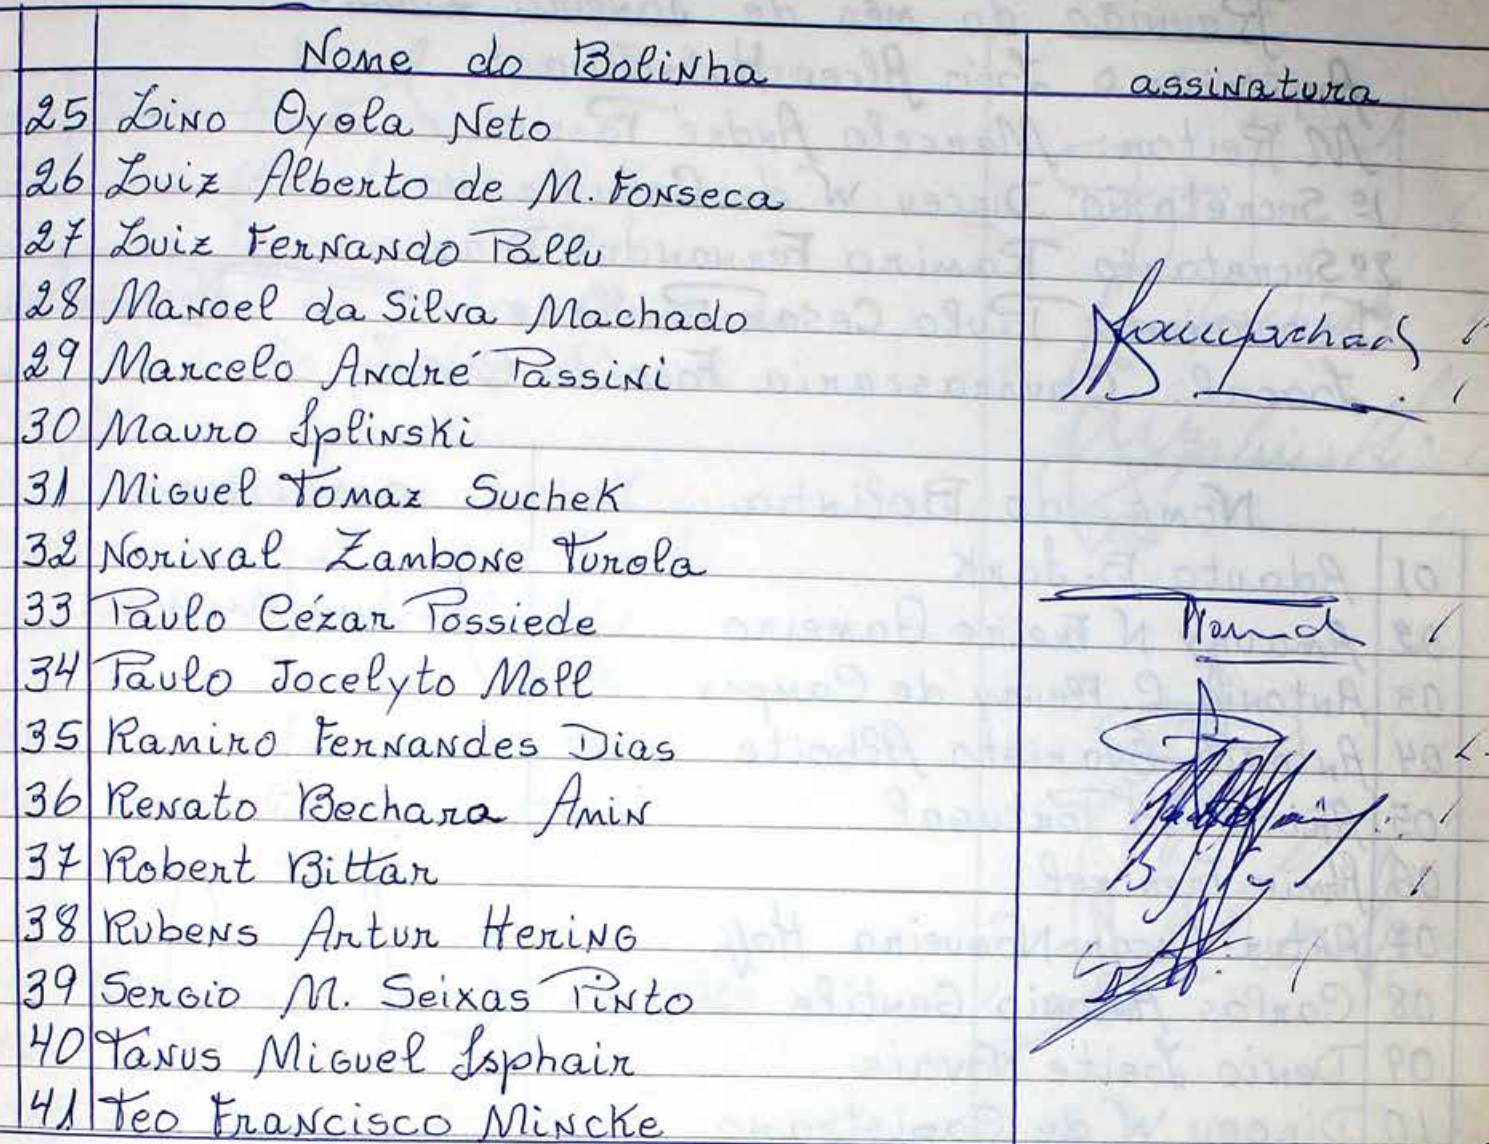 Nome do Bolinha assinatura
25 Lino Oyola Neto
26 Luiz Alberto de M. Fonseca
27 Luiz Fernando Pallu
28 Manoel da Silva Machado
29 Marcelo André Passini
30 Mauro Iplinski
31 Miguel Tomaz Suchek
32 Norival Zambone Turola
33 Paulo Cézar Possiede
34 Paulo Jocelyto Moll
35 Ramiro Fernandes Dias
36 Renato Bechara Amin
37 Robert Bittar
38 Rubens Artur Hering
39 Sergio M. Seixas Pinto
40 Tanus Miguel Isphair
41 Teo Francisco Mincke